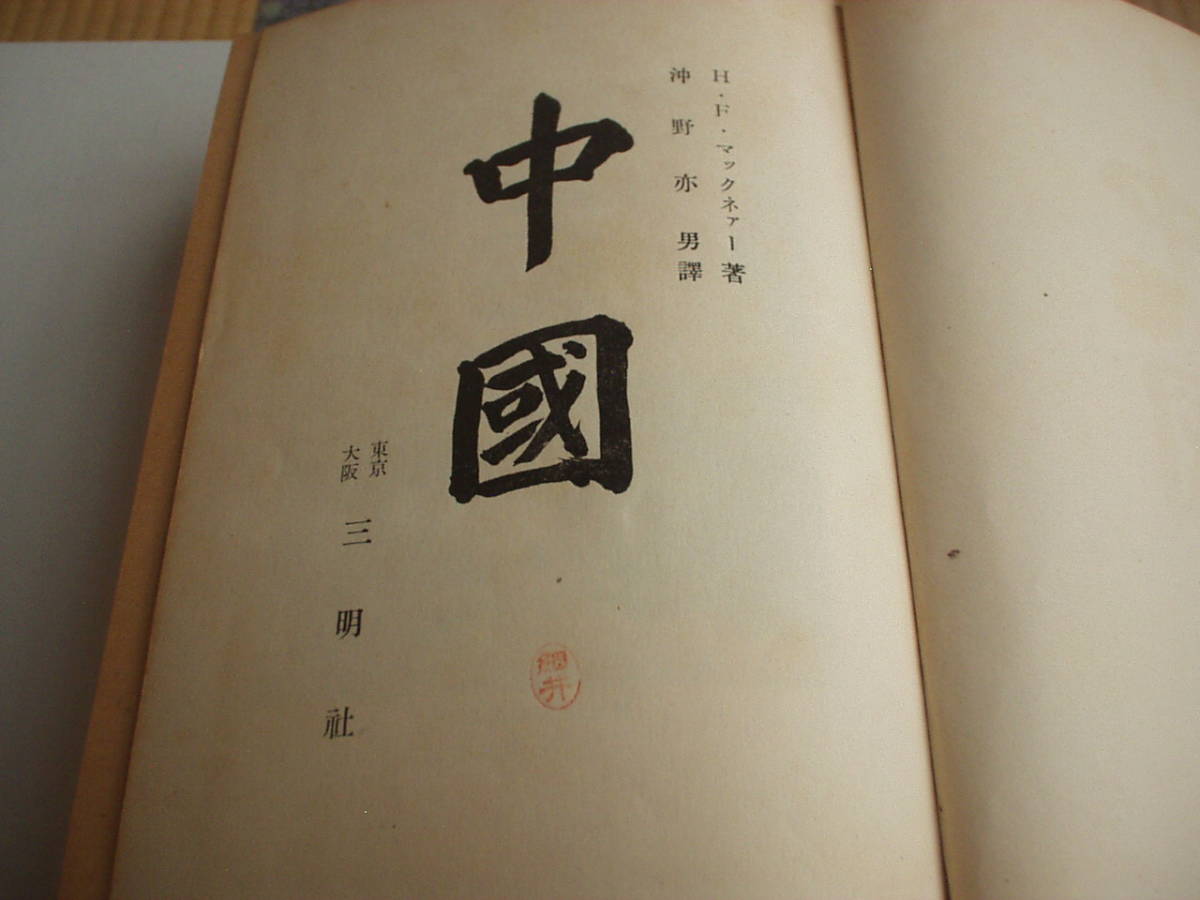 H・F・マックネァー著
沖野亦男譯
中國
東京
大阪
三明社